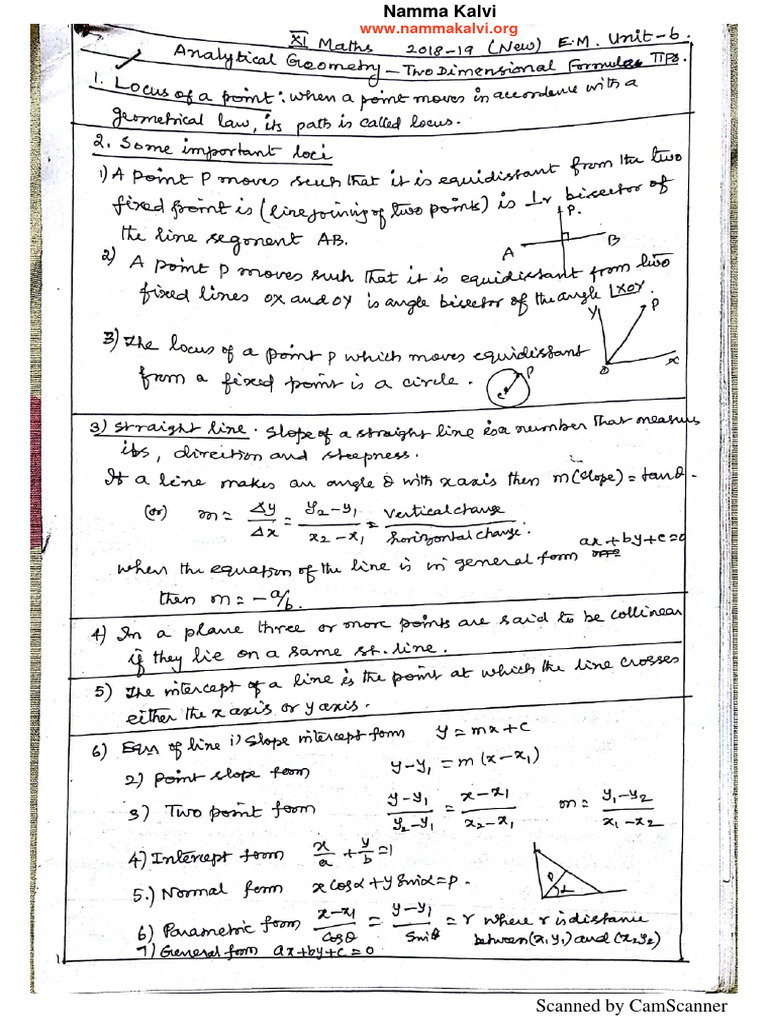 Namma Kalvi
www.nammakalvi.org
XI Maths 2018-19 (New) E.M. Unit-6.
Analytical Geometry – Two Dimensional Formulae TIPS.
1. Locus of a point: when a point moves in accordence with a
geometrical law, its path is called locus.
2. Some important loci
1) A point P moves such that it is equidistant from the two
fixed point is (line joining of two points) is ⊥r bisector of
the line segment AB.
P.
A
B
2) A point P moves such that it is equidistant from two
fixed lines OX and OY is angle bisector of the angle ∠XOY.
Y
P
O
x
3) The locus of a point P which moves equidistant
from a fixed point is a circle.
P
C
3) straight line. Slope of a straight line is a number that measures
its, direction and steepness.
If a line makes an angle θ with x axis then m(slope) = tanθ.
(or) m = Δy/Δx = y₂-y₁/x₂-x₁ = vertical change/horizontal change.
when the equation of the line is in general form ax+by+c=0
then m = -a/b.
4) In a plane three or more points are said to be collinear
if they lie on a same st. line.
5) The intercept of a line is the point at which the line crosses
either the x axis or y axis.
6) Eqn of line i) Slope intercept form y = mx+c
2) Point slope form y-y₁ = m(x-x₁)
3) Two point form y-y₁/y₂-y₁ = x-x₁/x₂-x₁ m = y₁-y₂/x₁-x₂
4) Intercept form x/a + y/b = 1
5.) Normal form x cosα + y sinα = p.
6) Parametric form x-x₁/cosθ = y-y₁/sinθ = r where r is distance
between (x₁y₁) and (x₂y₂)
7) General form ax+by+c=0
Scanned by CamScanner